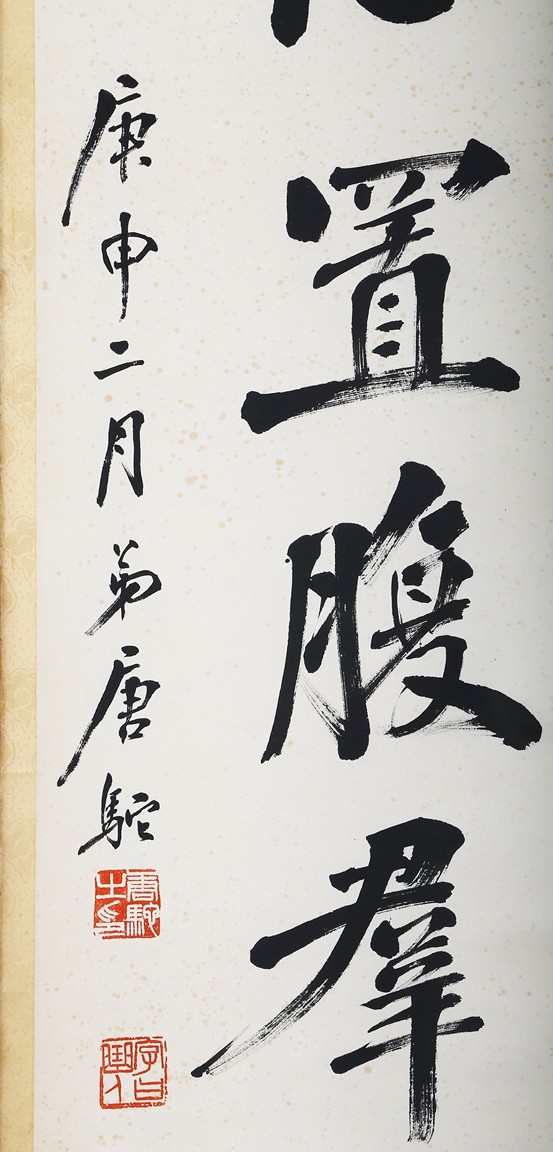 置腹羣
庚申二月弟唐駝
唐駝之印
字曰